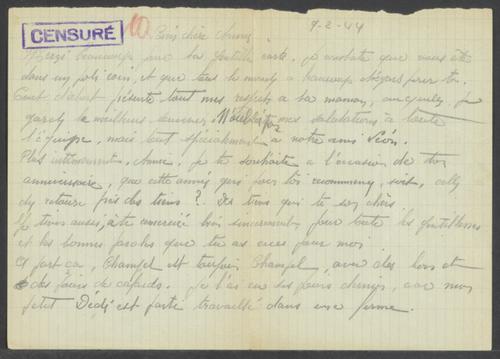 CENSURÉ 10. Bien chère Anny 9-2-44
Merci beaucoup pour ta gentille carte. Je constate que vous êtes
dans un joli coin, et que tout le monde a beaucoup d'égards pour toi.
Tout d'abord présente tout mes respects à ta maman, auquelle je
garde le meilleur souvenir. N'oublie pas mes salutations à toute
l'équipe, mais tout spécialement à notre ami Léon.
Plus intimement, Anny. Je te souhaite à l'occasion de ton
anniversaire, que cette année qui pour toi recommence, soit, celle
du retour près des tiens ?. Des tiens qui te son chers.
Je tiens aussi, à te remercié bien sincèrement pour toute les gentillesses
et les bonnes paroles que tu as eues pour moi.
A part ça, Champel est toujours Champel, avec des hors et
des jours de cafards. Je t'ai eu ses jours, car mon
petit Dédé est parti travaillé dans une ferme.